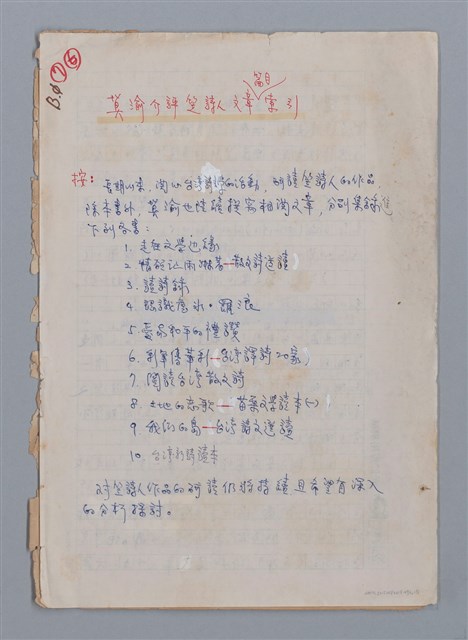 B.φ ⑦ ⑥
篇目
莫渝介評笠詩人文章索引
按：長期以來，關心台灣詩學的活動，研讀笠詩人的作品，
除本書外，莫渝也陸續撰寫相關文章，分別集錄進
下列各書：
1. 走在文學邊緣
2. 愜意的雨淋著—散文詩選讀
3. 讀詩錄
4. 認識詹冰・羅浪
5. 愛與和平的禮讚
6. 彩筆傳華彩—台灣譯詩20家
7. 閱讀台灣散文詩
8. 土地的戀歌—苗栗文學讀本(一)
9. 我們的島—台灣詩文選讀
10. 台灣新詩讀本
對笠詩人作品的研讀仍將持續且希望有深入
的分析探討。